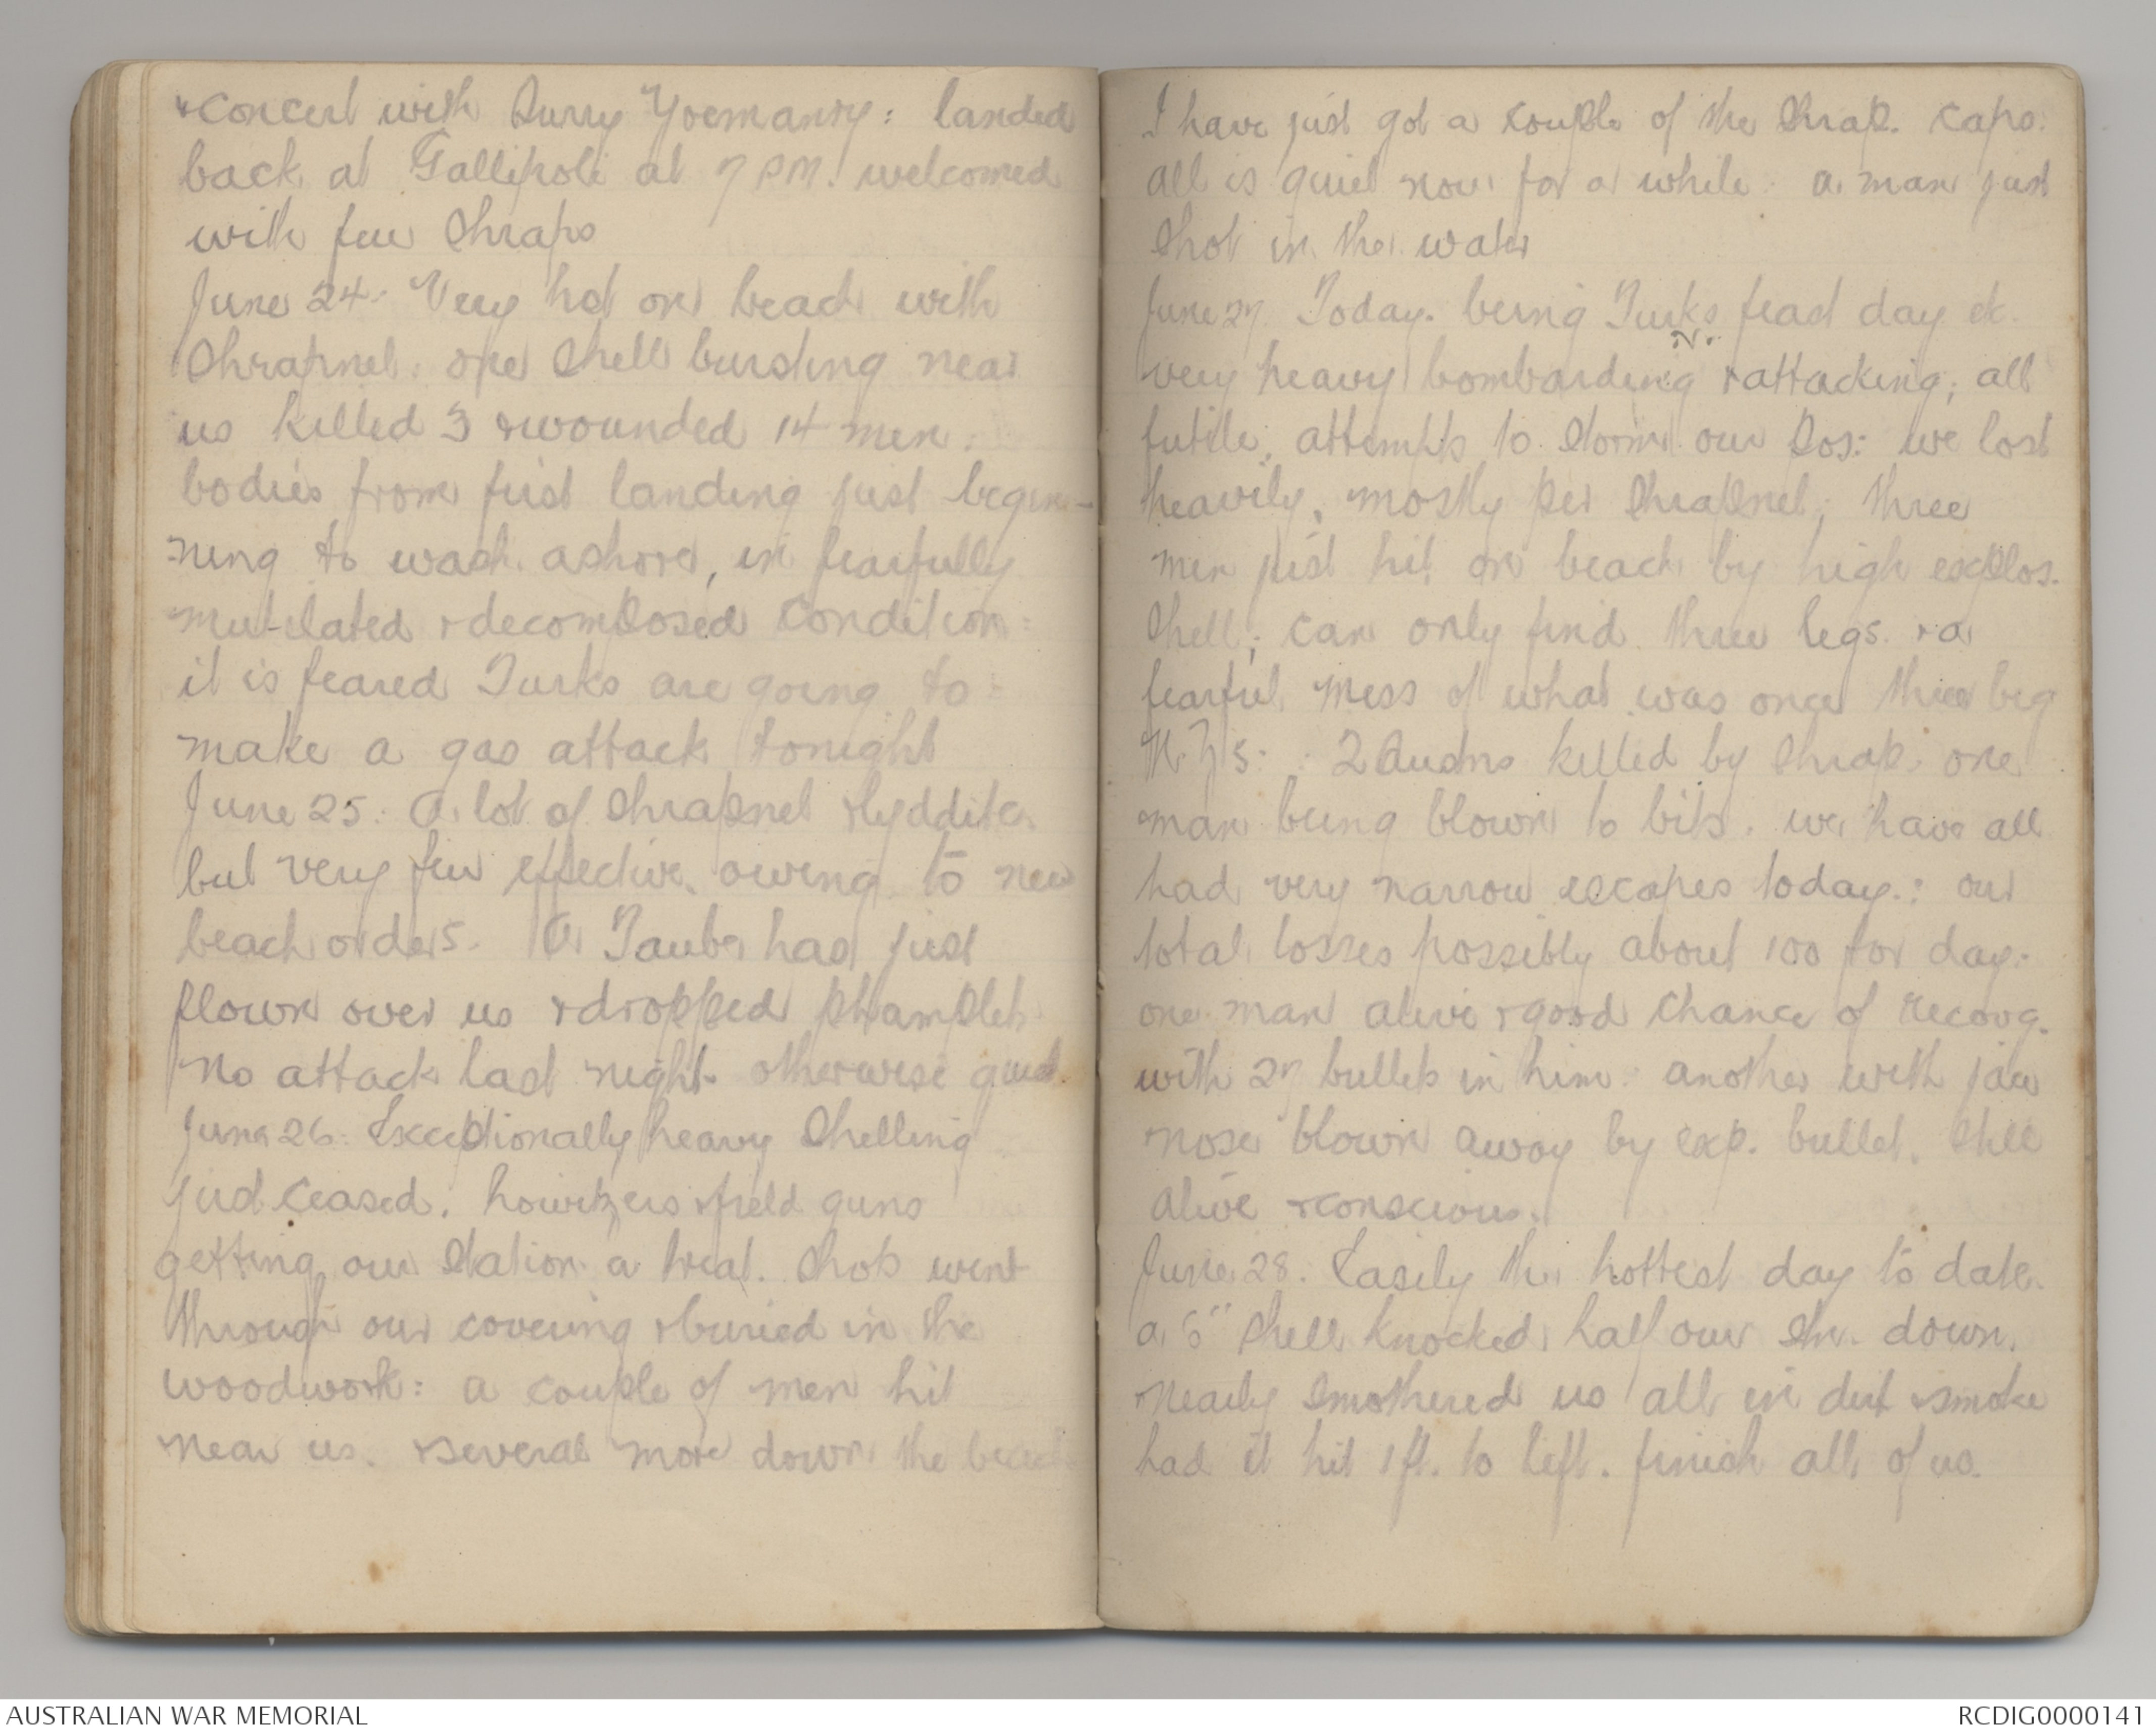 & concert with Surry Yoemanry: landed
back at Gallipoli at 7 PM. welcomed
with few Shraps
June 24. Very hot on beach with
Shrapnel. one Shell bursting near
us killed 3 & wounded 14 men.
bodies from first landing just begin-
ning to wash ashore, in fearfully
mutilated & decomposed condition:
it is feared Turks are going to
make a gas attack tonight
June 25. A lot of Shrapnel & lyddite
but very few effective. owing to new
beach orders. A Taube has just
flown over us & dropped phamplets
No attack last night. otherwise quiet.
June 26. Exceptionally heavy Shelling
just ceased. howitzers & field guns
getting our Station a treat. Shots went
through our covering & buried in the
woodwork: a couple of men hit
near us. & several more down the beach
I have just got a couple of the Shrap. caps.
all is quiet now for a while. a man just
Shot in the water
June 27. Today. being Turks feast day etc.
very heavy bombarding & attacking, all
futile, attempts to storm our pos: we lost
heavily, mostly per Shrapnel, three
men just hit on beach by high explos.
Shell; can only find three legs & a
fearful mess of what was once three big
N.Z's: 2 Austns killed by Shrap. one
man being blown to bits. we have all
had very narrow escapes today.: our
total losses possibly about 100 for day.
one man alive & good chance of recovg.
with 27 bullets in him. another with jaw
nose blown away by exp. bullet. Still
alive & conscious.
June 28. Easily the hottest day to date.
a 6" Shell knocked half our Stn. down.
nearly Smothered us all in dirt & smoke
had it hit 1 ft. to left. finish all of us.
AUSTRALIAN WAR MEMORIAL
RCDIG0000141